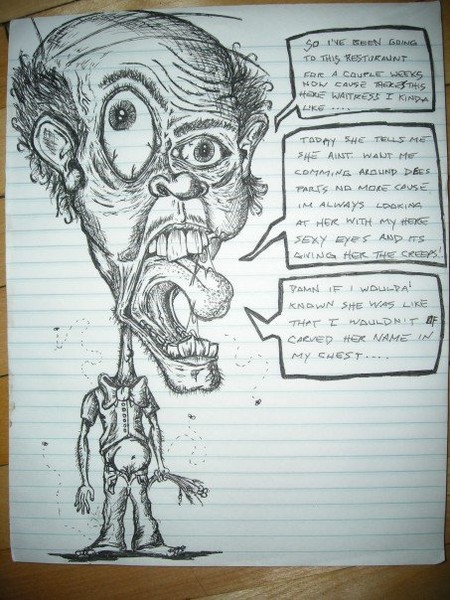 SO I'VE BEEN GOING
TO THIS RESTURAUNT
FOR A COUPLE WEEKS
NOW CAUSE THERES THIS
HERE WAITRESS I KINDA
LIKE ....
TODAY SHE TELLS ME
SHE AINT WANT ME
COMMING AROUND DEES
PARTS NO MORE CAUSE
IM ALWAYS LOOKING
AT HER WITH MY HERE
SEXY EYES AND ITS
GIVING HER THE CREEPS!
DAMN IF I WOULDA'
KNOWN SHE WAS LIKE
THAT I WOULDN'T OF
CARVED HER NAME IN
MY CHEST....